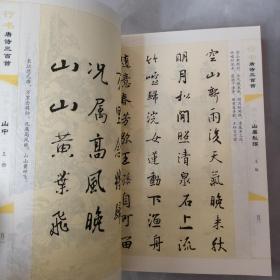 唐诗三百首
山居秋暝
王维
空山新雨後天氣晚來秋
明月松間照清泉石上流
竹喧歸浣女蓮動下漁舟
隨意春芳歇王孫自可留
行书
唐诗三百首
山中
王勃
长江悲已滞，万里念将归。
况属高风晚，山山黄叶飞。
況属高風晚
山山黄葉飛